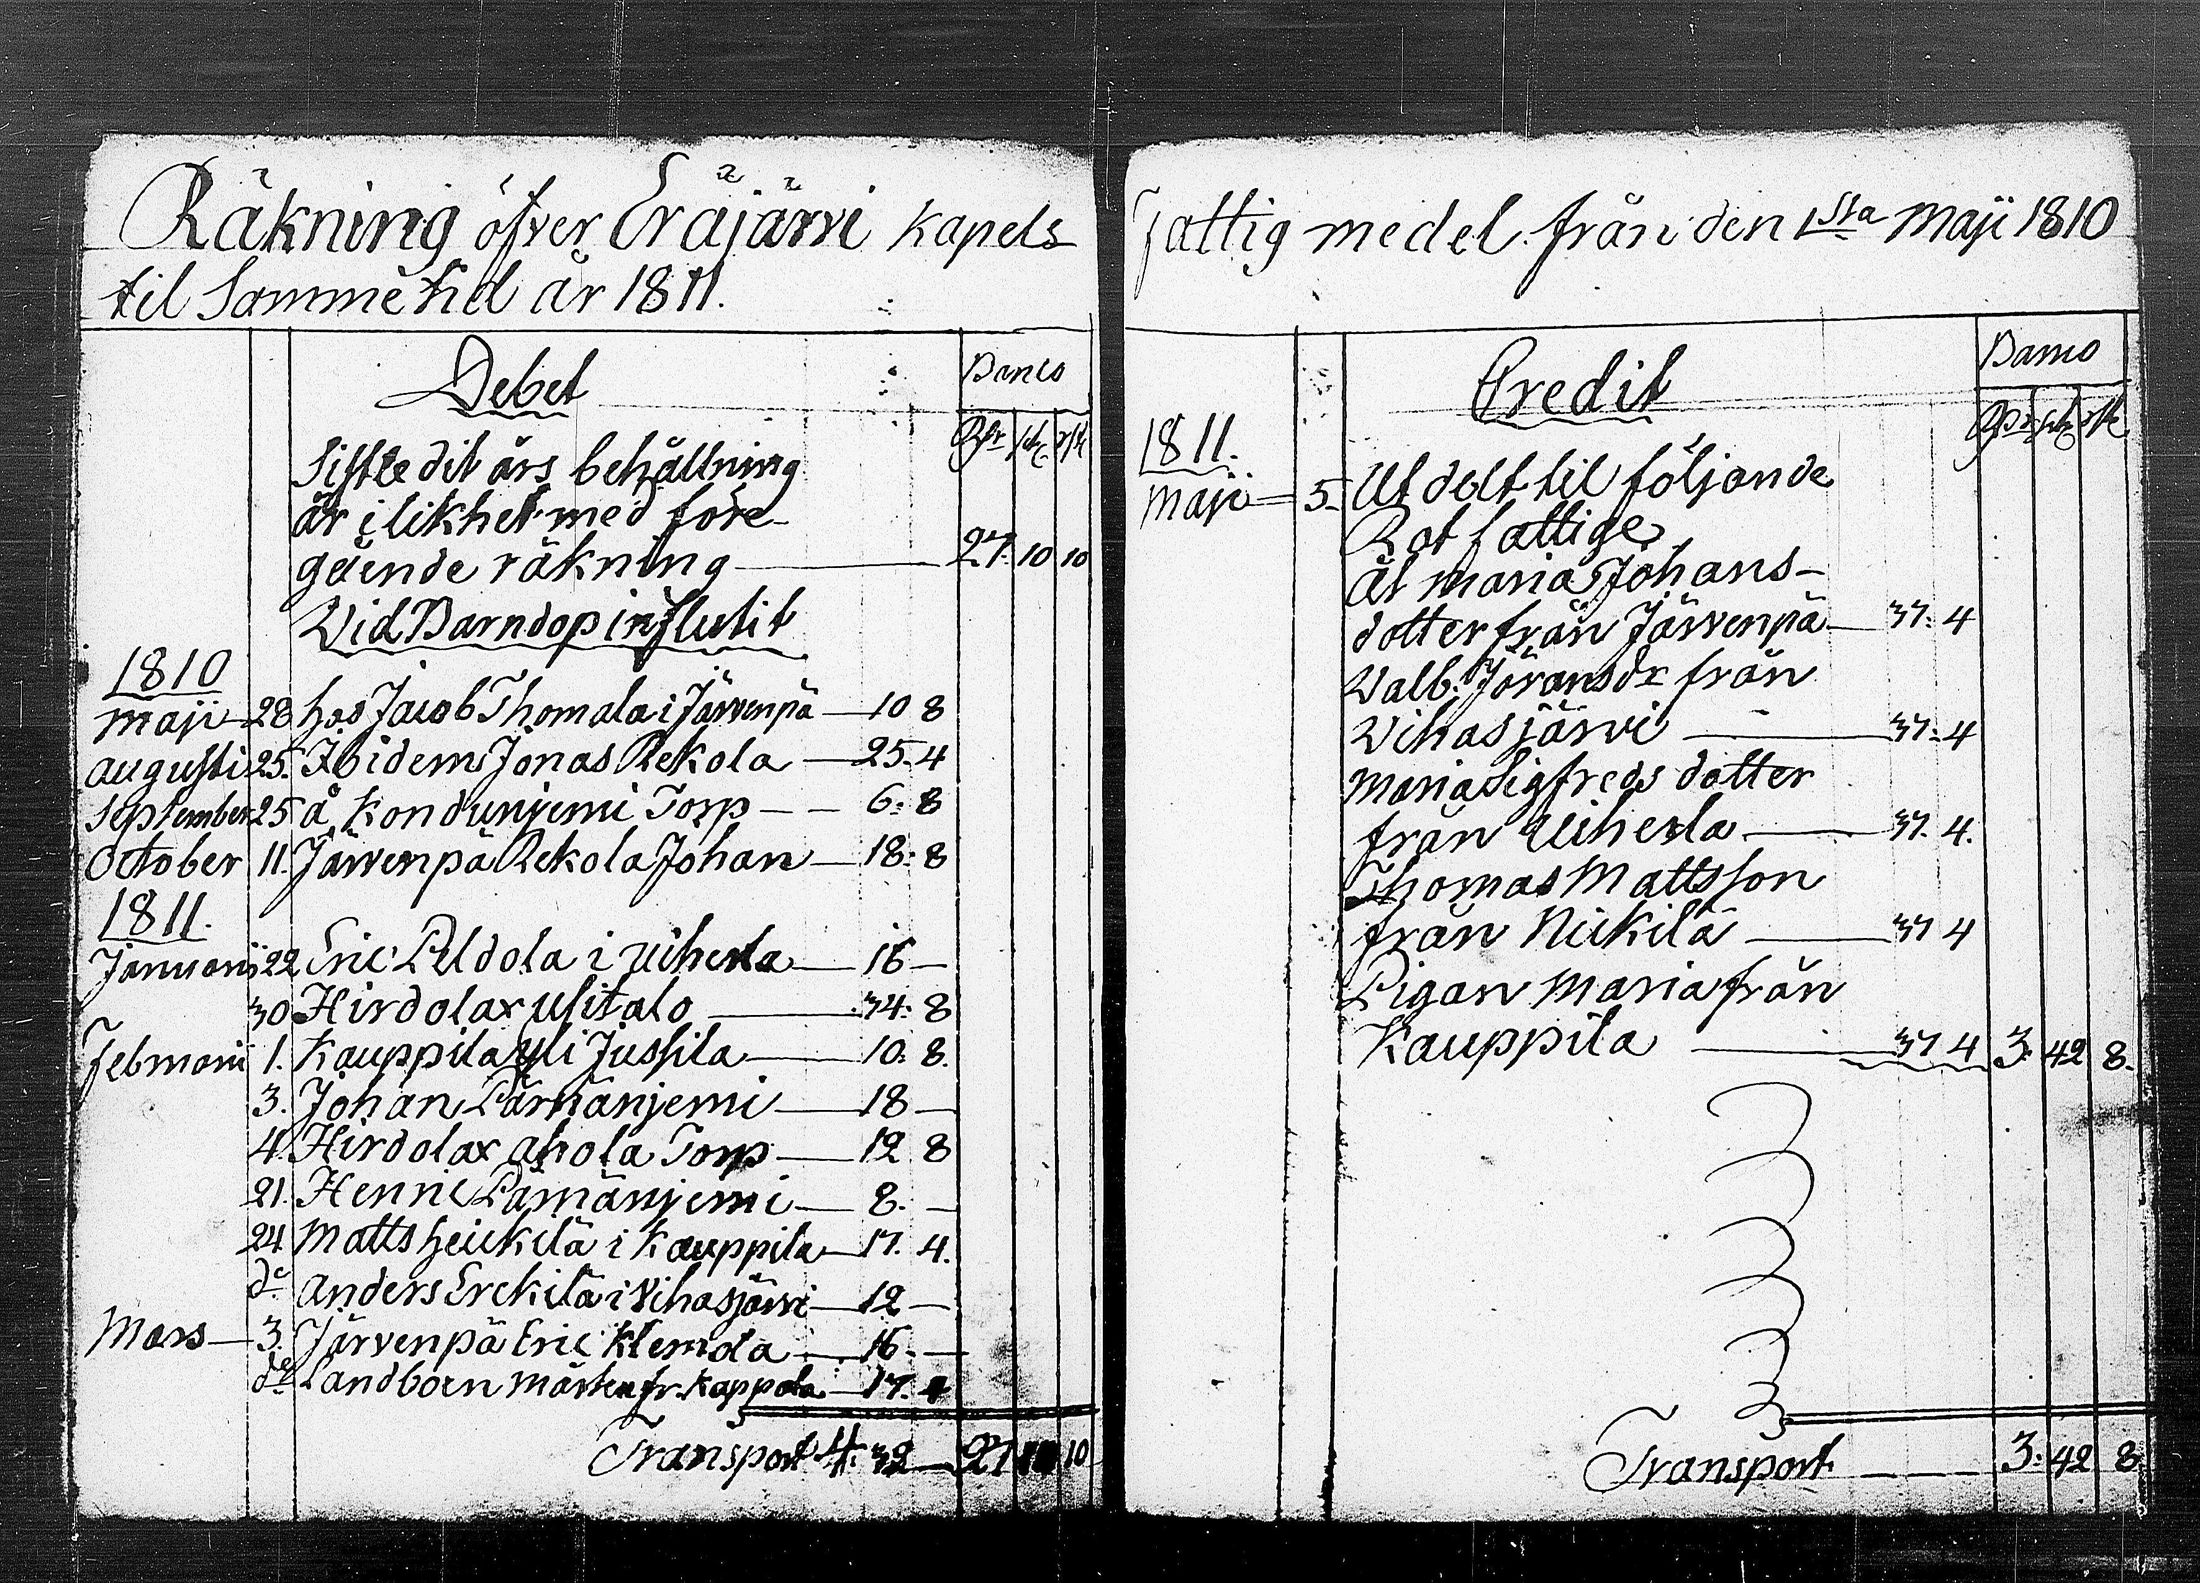 Räkning öfver Eräjärvi Kapels
til Samme tid år 1811.
Debet
Banco
Rdr sk. rst
Sistledit års behållning
är i likhet med före-
gående räkning — 27. 10 10
Vid Barndop influtit
1810
Maji — 28 hos Jacob Thomala i Järvenpä — 10 8
Augusti 25. Ibidem Jonas Rekola — 25. 4
September 25 å Kondunjemi Torp — 6. 8
October 11. Järvenpä Rekola Johan — 18. 8
1811.
Januarii 22 Eric Peldola i Uiherla — 16 —
30 Hirdolax Ulitalo — 34. 8
Februarii 1. Kauppila Yli Jussila — 10. 8.
3. Johan Pärnänjemi — 18 —
4. Hirdolax Ahola Torp — 12 8
21. Henric Pärnänjemi — 8. —
24 Matts Heickilä i Kauppila — 17. 4.
do Anders Erckilä i Vihasjärvi — 12 —
Mars — 3. Järvenpä Eric Klemola — 16. —
do Landboen Mårten fr. Kappola — 17. 4
Transport 4. 32 — 27 10 10
Fattig medel från den 1sta Maji 1810
Credit
Banco
Rdr sk rst
1811.
Maji — 5. Utdelt til följande
Rotfattige
åt Maria Johans-
dotter från Järvenpä — 37. 4
Valb. Jöransdr från
Vihasjärvi — 37. 4
Maria Sigfreds dotter
från Uiherla — 37. 4.
Thomas Mattsson
från Nickilä — 37 4
Pigan Maria från
Kauppila — 37 4 3. 42 8.
Transport — 3. 42 8